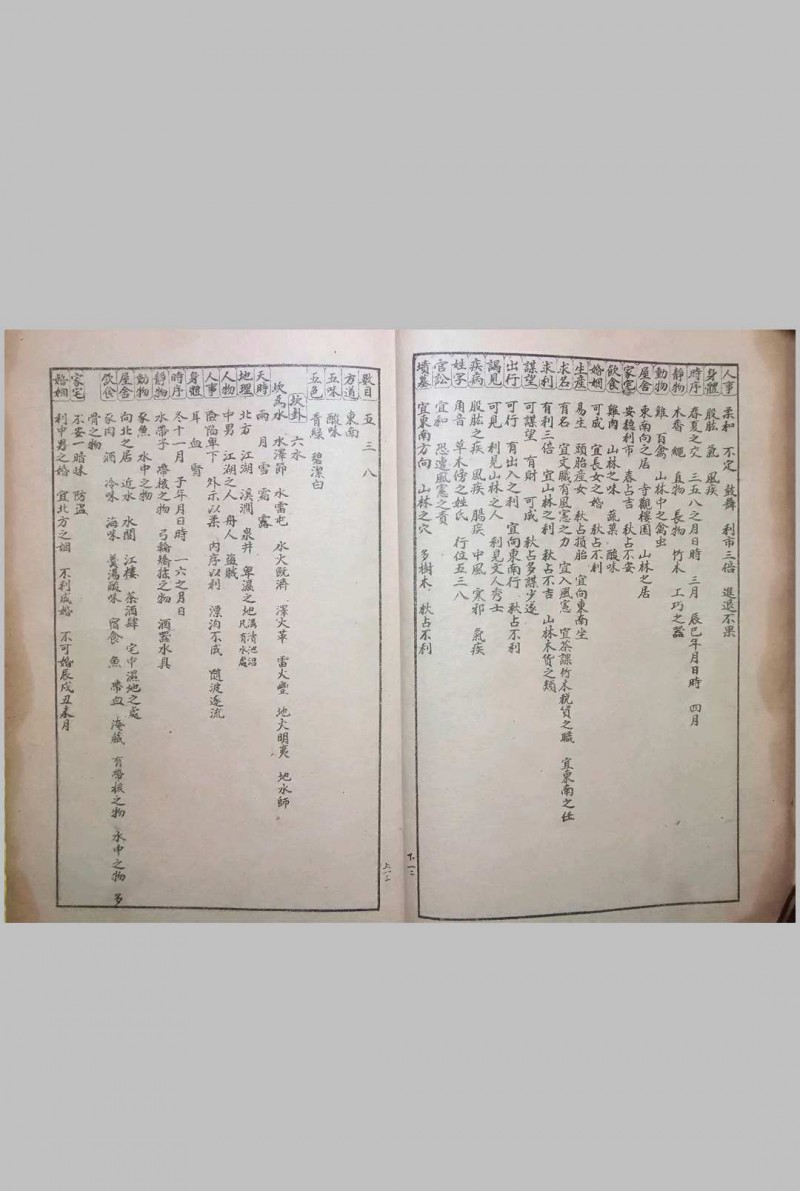 人事 柔和 不定 鼓舞 利市三倍 進退不果
身體 股肱 氣 風疾
時序 春夏之交 三五八之月日時 三月 辰巳年月日時 四月
靜物 木香 繩 直物 長物 竹木 工巧之器
動物 雞 百禽 山林中之禽虫
屋舍 東南向之居 寺觀樓園 山林之居
家宅 安穩利市 春占吉 秋占不安
飲食 雞肉 山林之味 蔬菓 酸味
婚姻 可成 宜長女之婚 秋占不利
生産 易生 頭胎産女 秋占損胎 宜向東南坐
求名 有名 宜文職有風憲之力 宜入風憲 宜茶課竹木税貨之職 宜東南之任
求利 有利三倍 宜山林之利 秋占不吉 山林木貨之類
謀望 可謀望 有財 可成 秋占多謀少遂
出行 可行 有出入之利 宜向東南行 秋占不利
謁見 可見 利見山林之人 利見文人秀士
疾病 股肱之疾 風疾 腸疾 中風 寒邪 氣疾
姓字 角音 草木傍之姓氏 行位五三八
官訟 宜和 恐遭風憲之責
墳墓 宜東南方向 山林之穴 多樹木 秋占不利
下一二
數目 五 三 八
方道 東南
五味 酸味
五色 青綠 碧潔白
坎卦 六水
坎爲水 水澤節 水雷屯 水火既濟 澤火革 雷火豐 地火明夷 地水師
天時 雨 月 雪 霜 露
地理 北方 江湖 溪澗 泉井 卑濕之地 溝清池沼 凡有水處
人物 中男 江湖之人 舟人 盜賊
人事 險陷卑下 外示以柔 内序以利 漂沟不成 隨波逐流
身體 耳 血 腎
時序 冬十一月 子年月日時 一六之月日
靜物 水帶子 帶核之物 弓輪矯揉之物 酒器水具
動物 豕魚 水中之物
屋舍 向北之居 近水 水閣 江樓 茶酒肆 宅中濕地之處
飲食 豕肉 酒 冷味 海味 羹湯酸味 宿食 魚 帶血 淹藏 有帶核之物 水中之物 多
骨之物
家宅 不安一暗昧 防盜
婚姻 利中男之婚 宜北方之姻 不利成婚 不可婚辰戌丑未月